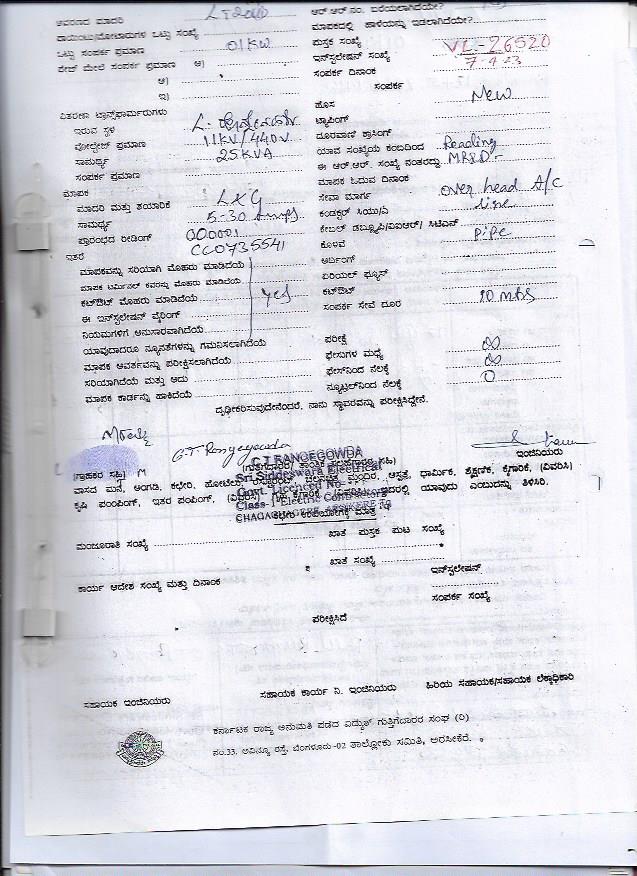 ಆವರಣದ ಮಾದರಿ
ಪಾಯಿಂಟು/ಮೋಟಾರುಗಳ ಒಟ್ಟು ಸಂಖ್ಯೆ
ಒಟ್ಟು ಸಂಪರ್ಕ ಪ್ರಮಾಣ 01KW
ಫೇಜ್ ಮೇಲೆ ಸಂಪರ್ಕ ಪ್ರಮಾಣ ಅ)
ಆ)
ಇ)
ವಿತರಣಾ ಟ್ರಾನ್ಸ್‌ಫಾರ್ಮರುಗಳು
ಇರುವ ಸ್ಥಳ
ವೋಲ್ಟೇಜ್ ಪ್ರಮಾಣ 11KV/440V
ಸಾಮರ್ಥ್ಯ 25KVA
ಸಂಪರ್ಕ ಪ್ರಮಾಣ
ಮಾಪಕ
ಮಾದರಿ ಮತ್ತು ತಯಾರಿಕೆ L&G
ಸಾಮರ್ಥ್ಯ 5-30 Amps
ಪ್ರಾರಂಭದ ರೀಡಿಂಗ್ 000001
ಇತರೆ CC0735541
ಮಾಪಕವನ್ನು ಸರಿಯಾಗಿ ಮೊಹರು ಮಾಡಿದೆಯೆ
ಮಾಪಕ ಟರ್ಮಿನಲ್ ಕವರನ್ನು ಮೊಹರು ಮಾಡಿದೆಯೆ
ಕಟ್‌ಔಟ್ ಮೊಹರು ಮಾಡಿದೆಯೆ yes
ಈ ಇನ್‌ಸ್ಟಲೇಷನ್ ವೈರಿಂಗ್
ನಿಯಮಗಳಿಗೆ ಅನುಸಾರವಾಗಿದೆಯೆ
ಯಾವುದಾದರೂ ನ್ಯೂನತೆಗಳನ್ನು ಗಮನಿಸಲಾಗಿದೆಯೆ
ಮಾಪಕ ಆವರ್ತವನ್ನು ಪರೀಕ್ಷಿಸಲಾಗಿದೆಯೆ
ಸರಿಯಾಗಿದೆಯೆ ಮತ್ತು ಅದು
ಮಾಪಕ ಕಾರ್ಡನ್ನು ಹಾಕಿದೆಯೆ
ಆರ್.ಆರ್.ನಂ. ಬರೆಯಲಾಗಿದೆಯೇ?
ಮಾಪಕದಲ್ಲಿ ಹಾಳೆಯನ್ನು ಇಡಲಾಗಿದೆಯೇ?
ಪುಸ್ತಕ ಸಂಖ್ಯೆ VL-26520
ಇನ್‌ಸ್ಟಲೇಷನ್ ಸಂಖ್ಯೆ 7-4-23
ಸಂಪರ್ಕ ದಿನಾಂಕ
ಸಂಪರ್ಕ
ಹೊಸ New
ಟ್ಯಾಪಿಂಗ್
ದೂರವಾಣಿ ಕ್ರಾಸಿಂಗ್
ಯಾವ ಸಂಖ್ಯೆಯ ಕಂಬದಿಂದ Reading
ಈ ಆರ್.ಆರ್. ಸಂಖ್ಯೆ ನಂತರದ್ದು
ಮಾಪಕ ಓದುವ ದಿನಾಂಕ
ಸೇವಾ ಮಾರ್ಗ over head A/C
ಕಂಡಕ್ಟರ್ ಸಿಯು/ಎ line
ಕೇಬಲ್ ಡಬ್ಲ್ಯೂಪಿ/ಐಆರ್/ ಸಿಟಿಎಸ್
ಕೊಳವೆ pipe
ಅರ್ಥಿಂಗ್
ಏರಿಯಲ್ ಫ್ಯೂಸ್
ಕಟ್‌ಔಟ್
ಸಂಪರ್ಕ ಸೇವೆ ದೂರ
ಪರೀಕ್ಷೆ
ಫೇಸುಗಳ ಮಧ್ಯೆ
ಫೇಸ್‌ನಿಂದ ನೆಲಕ್ಕೆ
ನ್ಯೂಟ್ರಲ್‌ನಿಂದ ನೆಲಕ್ಕೆ 0
ದೃಢೀಕರಿಸುವುದೇನೆಂದರೆ, ನಾನು ಸ್ಥಾವರವನ್ನು ಪರೀಕ್ಷಿಸಿದ್ದೇನೆ.
G.T. Rangegowda
(ಗ್ರಾಹಕರ ಸಹಿ) ಇಂಜಿನಿಯರು
G.T RANGEGOWDA
Sri Siddeswara Electrical
Govt. Licenced No-
Class-1 Electric Contractors
ವಾಸದ ಮನೆ, ಅಂಗಡಿ, ಕಛೇರಿ, ಹೋಟೆಲ್, ಮಂದಿರ, ಆಸ್ಪತ್ರೆ, ಧಾರ್ಮಿಕ, ಶೈಕ್ಷಣಿಕ, ಕೈಗಾರಿಕೆ, (ವಿವರಿಸಿ)
ಕೃಷಿ ಪಂಪಿಂಗ್, ಇತರ ಪಂಪಿಂಗ್, (ವಿವರಿಸಿ) ಯಾವುದು ಎಂಬುದನ್ನು ತಿಳಿಸಿರಿ.
ಕಛೇರಿ ಉಪಯೋಗಕ್ಕೆ ಮಾತ್ರ
ಮಂಜೂರಾತಿ ಸಂಖ್ಯೆ ಖಾತೆ ಪುಸ್ತಕ ಪುಟ ಸಂಖ್ಯೆ
ಖಾತೆ ಸಂಖ್ಯೆ
ಕಾರ್ಯ ಆದೇಶ ಸಂಖ್ಯೆ ಮತ್ತು ದಿನಾಂಕ ಇನ್‌ಸ್ಟಲೇಷನ್
ಸಂಪರ್ಕ ಸಂಖ್ಯೆ
ಪರೀಕ್ಷಿಸಿದೆ
ಸಹಾಯಕ ಇಂಜಿನಿಯರು ಸಹಾಯಕ ಕಾರ್ಯ ನಿ. ಇಂಜಿನಿಯರು ಹಿರಿಯ ಸಹಾಯಕ/ಸಹಾಯಕ ಲೆಕ್ಕಾಧಿಕಾರಿ
ಕರ್ನಾಟಕ ರಾಜ್ಯ ಅನುಮತಿ ಪಡೆದ ವಿದ್ಯುತ್ ಗುತ್ತಿಗೆದಾರರ ಸಂಘ (ರಿ)
ನಂ.33. ಅವಿನ್ಯೂ ರಸ್ತೆ, ಬೆಂಗಳೂರು-02 ತಾಲ್ಲೋಕು ಸಮಿತಿ, ಅರಸೀಕೆರೆ.